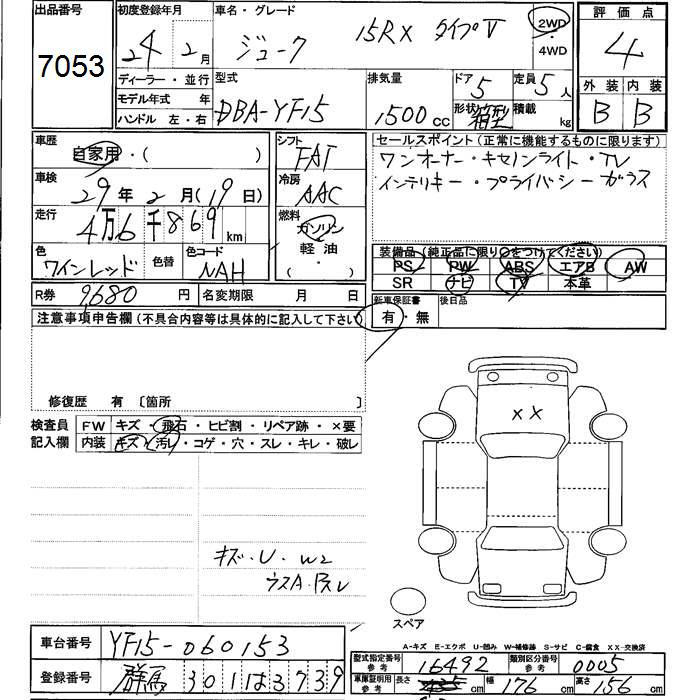 出品番号
7053
初度登録年月
24年2月
車名・グレード
ジューク 15RX タイプV
2WD
・
4WD
評価点
4
外装 内装
B B
ディーラー・並行
モデル年式 年
ハンドル 左・右
型式
DBA-YF15
排気量
1500 cc
ドア 5
形状 箱型
定員 5人
積載 kg
車歴
自家用・( )
車検
29年2月(19日)
走行
4万6千869 km
色
ワインレッド
色替
色コード
NAH
シフト
FAT
冷房
AAC
燃料
ガソリン
軽油
( ・ )
セールスポイント(正常に機能するものに限ります)
ワンオーナー・キセノンライト・TV
インテリキー・プライバシーガラス
装備品(純正品に限り○をつけてください)
PS PW ABS エアB AW
SR ナビ TV 本革
R券 9680 円 名変期限 月 日
新車保証書
有・無
後日品
注意事項申告欄(不具合内容等は具体的に記入して下さい)
修復歴 有 〔箇所 〕
検査員
記入欄
FW キズ・飛石・ヒビ割・リペア跡・×要
内装 キズ・汚レ・コゲ・穴・スレ・キレ・破レ
XX
キズ・U・W2
ウスA・Pスレ
スペア
A-キズ E-エクボ U-凹み W-補修跡 S-サビ C-腐食 XX-交換済
車台番号 YF15-060153
登録番号 群馬 301 は 3739
型式指定番号
参考
16492
類別区分番号
参考
0005
車庫証明用
参考
長さ cm 幅 176 cm 高さ 156 cm